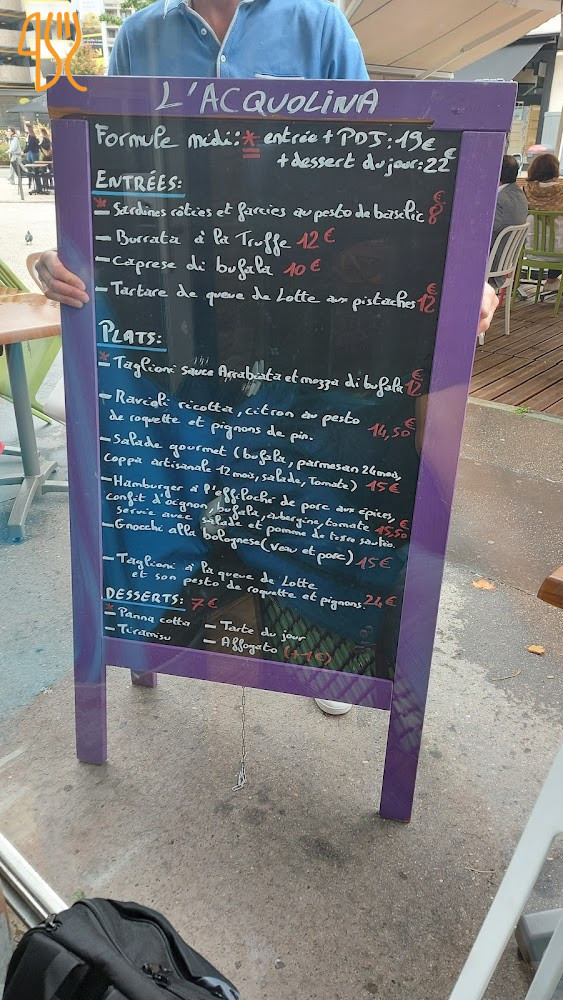 L'ACQUOLINA
Formule midi: * entrée + PDJ: 19€
+ dessert du jour: 22€
ENTRÉES:
* - Sardines rôties et farcies au pesto de basilic 8€
- Burrata à la Truffe 12€
- Caprese di bufala 10€
- Tartare de queue de Lotte aux pistaches 12€
PLATS:
* - Taglioni sauce Arrabiata et mozza di bufala 12€
- Ravioli ricotta, citron au pesto
de roquette et pignons de pin. 14,50€
- Salade gourmet (bufala, parmesan 24 mois,
coppa artisanale 12 mois, salade, Tomate) 15€
- Hamburger à l'effiloché de porc aux épices,
confit d'oignon, bufala, aubergine, tomate 15,50€
servie avec salade et pomme de terre sautée.
- Gnocchi alla bolognese (veau et porc) 15€
- Taglioni à la queue de Lotte
et son pesto de roquette et pignons. 24€
DESSERTS: 7€
* - Panna cotta - Tarte du jour
- Tiramisu - Affogato (+1€)